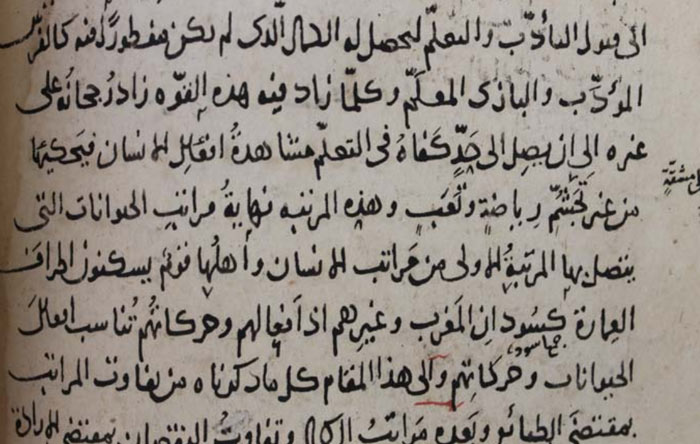 الى قبول التأدّب والتعلّم ليحصل له الكمال الذى لم يكن مفطورًا فيه كالفرس
المؤدّب والبازى المعلّم وكلّما زاد فيه هذه القوّه زاد رجحانه على
غيره الى ان يصل الى حدٍّ كفاهُ فى التعلّم مشاهدةُ افعال الانسان فيحكيها
من غير تجشّم رياضةٍ وتعبٍ وهذه المرتبه نهايةُ مراتب الحيوانات التى
يتصل بها المرتبةُ الاولى من مراتب الانسان وأهلُها قومٌ يسكنون اطراف
العمارة كسودان المغرب وغيرهم اذ افعالهم وحركاتهُم تُناسب افعال
جمع اسود
الحيوانات وحركاتهم والى هذا المقام كل ماذكرناه من تفاوت المراتب
بمقتضى الطبائع وبعده مراتبُ الكمال وتفاوتُ النقصان بمقتضى الارادة
مشقّةٍ